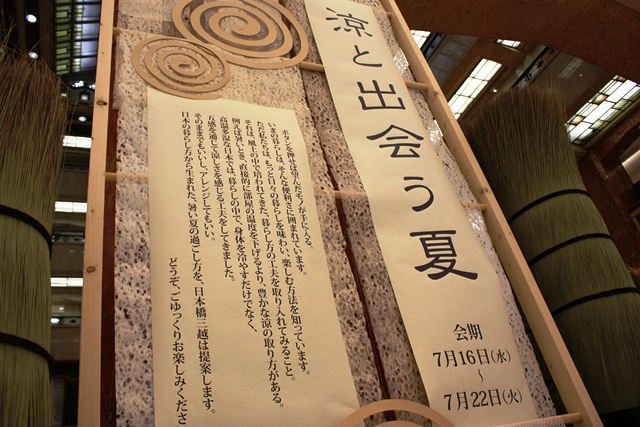 涼と出会う夏
会期
7月16日(水)
～
7月22日(火)
ボタンを押せば望んだモノが手に入る。
いまの暮らしは、そんな便利さに囲まれています。
ただ私たちは、もっと日々の暮らしを味わい、楽しむ方法を知っています。
それは、風土の中で培われてきた、暮らし方の工夫を取り入れてみること。
例えば暑いとき、直接的に部屋の温度を下げるより、豊かな涼の取り方がある。
高温多湿な日本では、暮らしの中で、身体を冷やすだけでなく、
五感を通じて涼しさを感じる工夫をしてきました。
そのままでもいいし、アレンジしてもいい。
日本の暮らし方から生まれた、暑い夏の過ごし方を、日本橋三越は提案します。
どうぞ、ごゆっくりお楽しみくださ